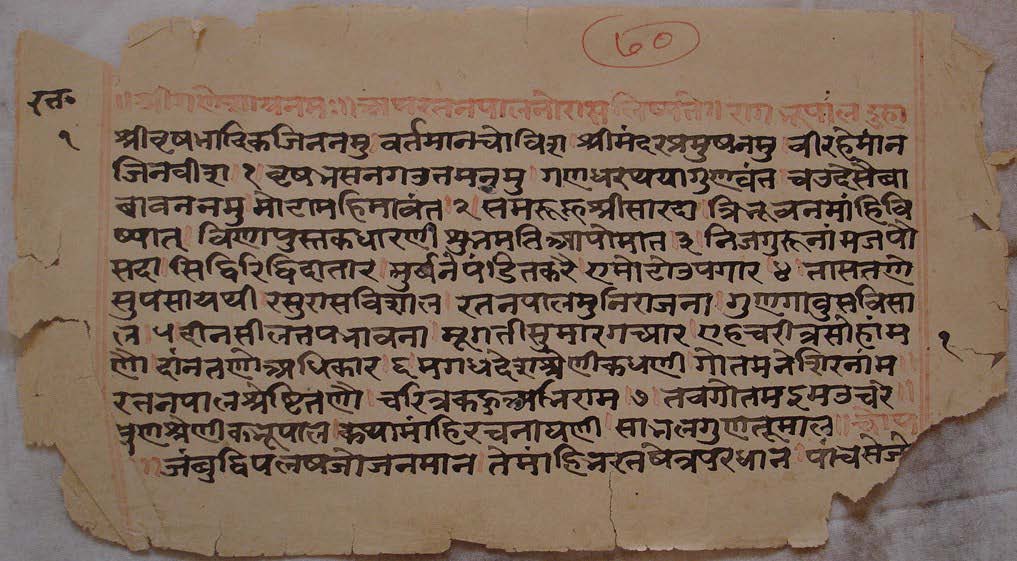 ७०
रतन॰
॥श्रीगणेशायनमः॥ अथरतनपालनोरास लिष्यते॥ राग भूपाल दुहा
१
श्रीऋषभादिकजिननमु वर्तमानचोविश श्रीमंदरप्रमुषनमु वीरहेमांन
जिनवीश १ ऋषभसेनगउतमनमु गणधरथयागुणवंत चउदेसैबा
बावननमु मोटामहिमावंत २ समरूहूश्रीसारदा त्रिभूवनमांहिवि
ष्यात विणापुस्तकधारणी शुभमतिआपोमात ३ निजगुरूनांमजपो
सदा सिद्धिरिद्धिदातार मुर्षनेपंडितकरै एमोटोउपगार ४ तासतणे
सुपसायथी रसुरासविशाल रतनपालमुनिराजना गुणगावुसविसा
ल ५ दानसीलतपभावना मूगतीसुमारगच्यार एहचरीत्रसोहांम
णो दांनतणोअधिकार ६ मगधदेशश्रेणीकधणी गोतमनेशिरनांम
रतनपालश्रेष्टितणौ चरित्रकहुअभिराम ७ तवगौतमइमउचरे
सुणश्रेणीकभूपाल कथामांहिरचनाघणी सांभलगुणतूमाल
१
जंबुद्विपलषजोजनमान तेमांहिभरतषेत्रपरधान पांचसेजो